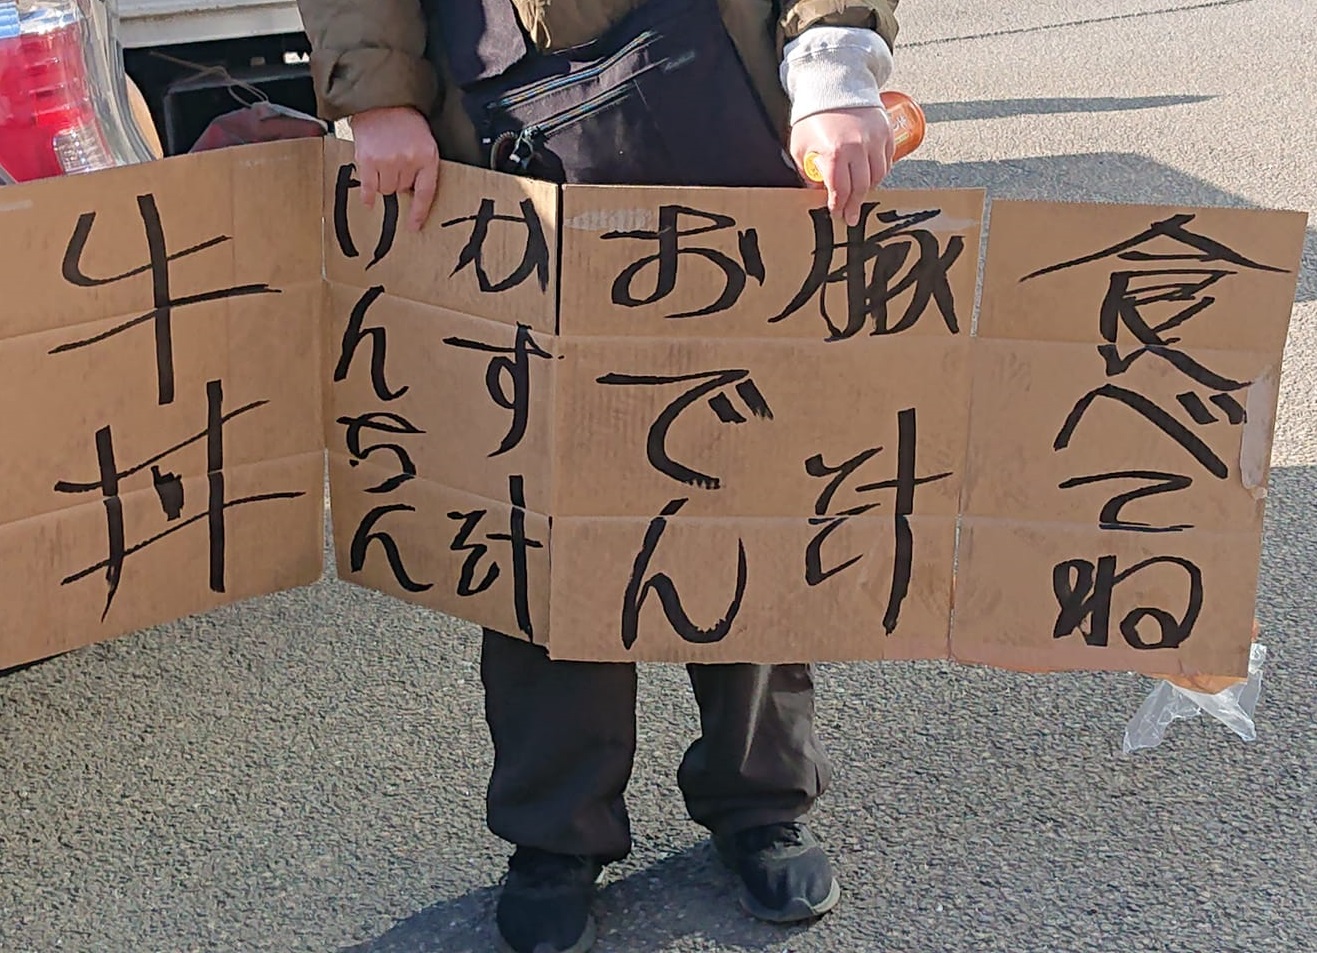 食べてね
豚汁
おでん
かす汁
けんちん
牛丼